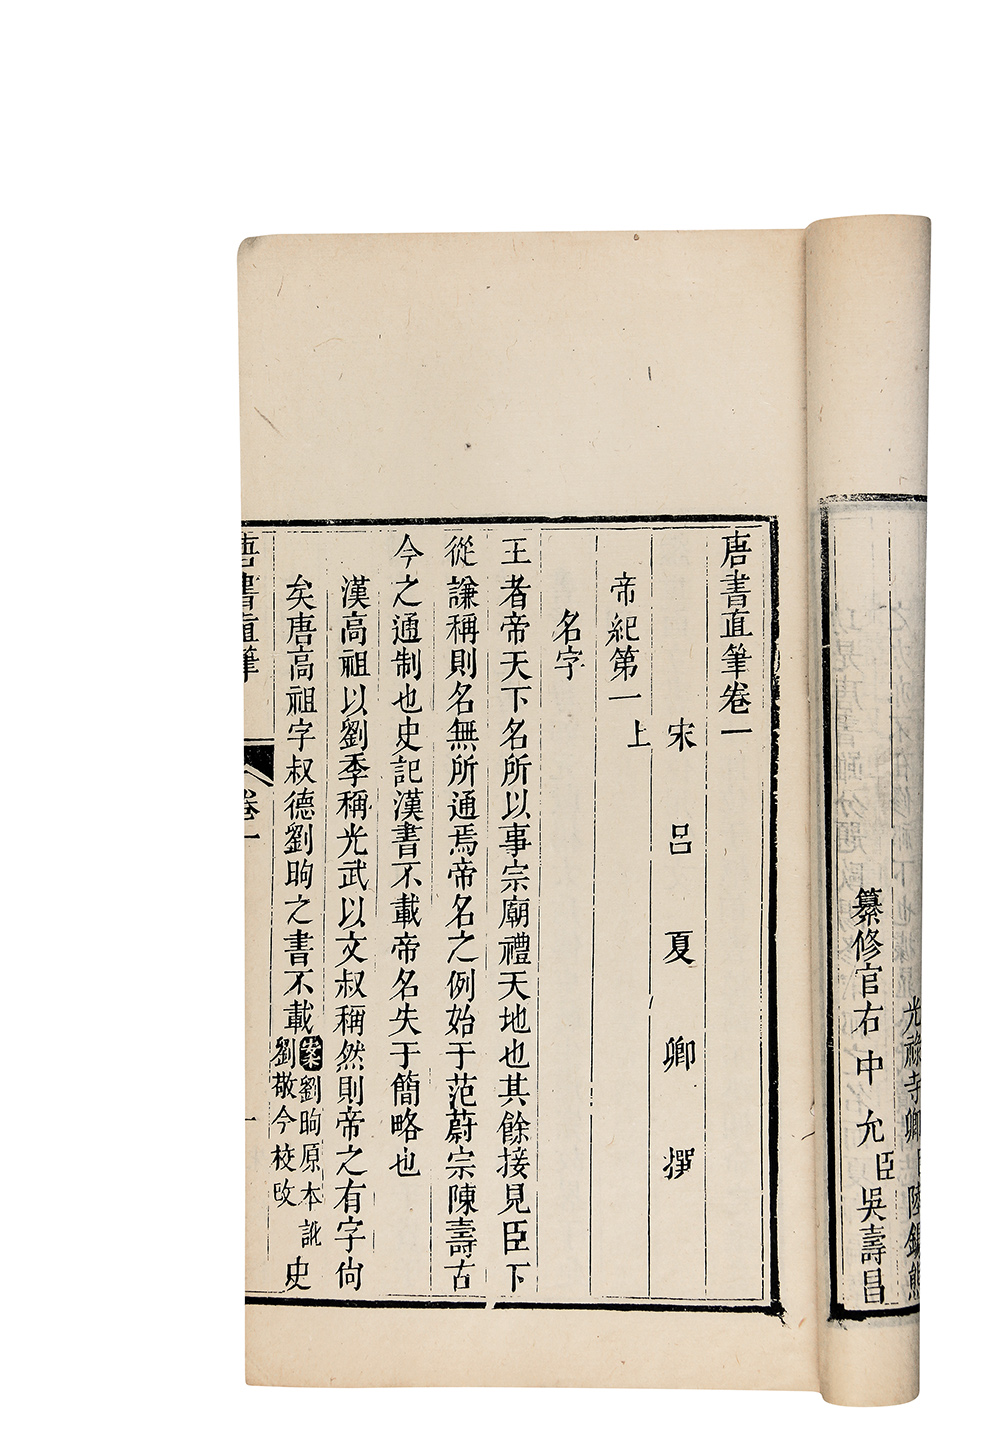 光祿寺卿臣陸錫熊
纂修官右中允臣吳壽昌
唐書直筆卷一
宋呂夏卿撰
帝紀第一上
名字
王者帝天下名所以事宗廟禮天地也其餘接見臣下
從謙稱則名無所通焉帝名之例始于范蔚宗陳壽古
今之通制也史記漢書不載帝名失于簡略也
漢高祖以劉季稱光武以文叔稱然則帝之有字尙
矣唐高祖字叔德劉昫之書不載案劉昫原本訛劉敬今校攺史
唐書直筆 卷一 一